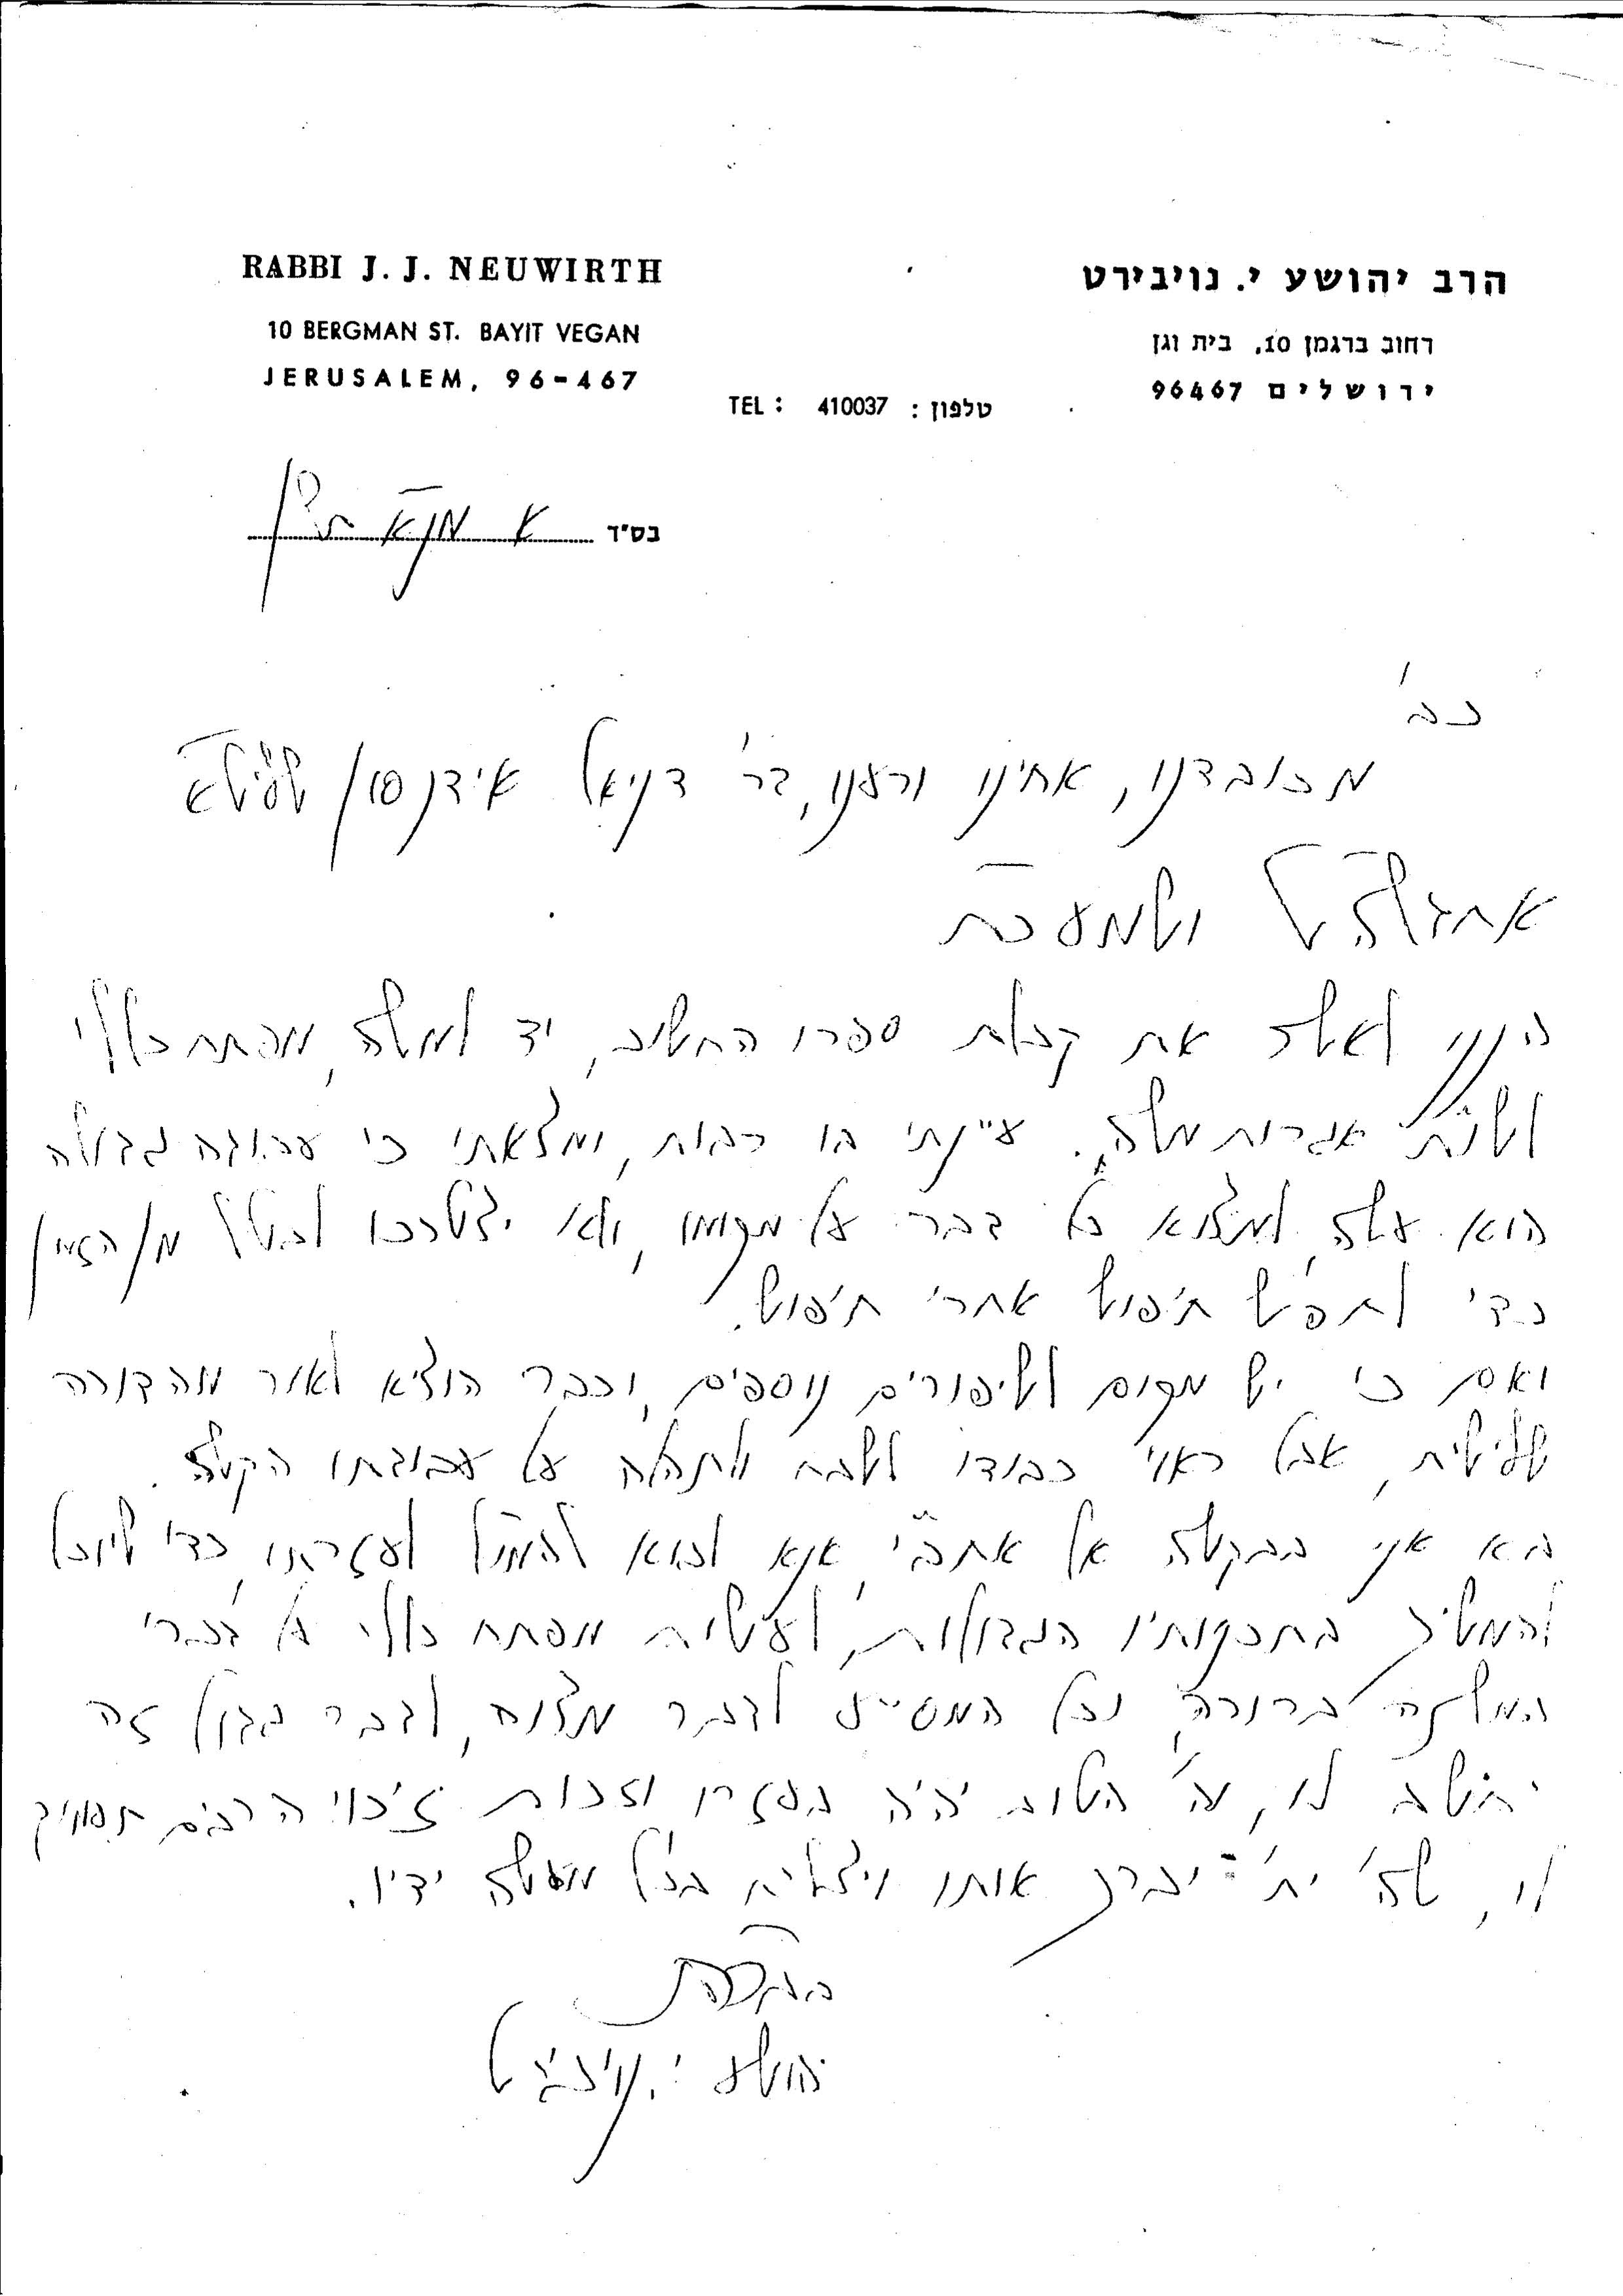 RABBI J. J. NEUWIRTH
10 BERGMAN ST. BAYIT VEGAN
JERUSALEM, 96-467
הרב יהושע י. נויבירט
רחוב ברגמן 10, בית וגן
ירושלים 96467
TEL: 410037 טלפון:
בס"ד
כב'
מכובדנו, אחינו ורענו, הר' דניאל אידנסון שליט"א
אחדשה"ט ושמע"כ
הנני לאשר את קבלת ספרו החשוב, יד למשה, מפתח כללי
לשו"ת אגרות משה. עיינתי בו רבות, ומצאתי כי עבודה גדולה
הוא עשה, למצוא כל דבר על מקומו, ולא יצטרכו לבטל מן הזמן
כדי לחפש חיפוש אחרי חיפוש.
ואם כי יש מקום לשיפורים נוספים, וכבר הוציא לאור מהדורה
שלישית, אבל ראוי כבודו לשבח ולתהלה על עבודתו הקשה.
בא אני בבקשה אל אחב"י, אנא לבוא לעזרתו, כדי שיוכל
להמשיך בתכניותיו הגדולות, לעשות מפתח כללי על דברי
המשנה ברורה, וכל המסייע לדבר מצוה, לדבר גדול זה
יחשב לו, וה' הטוב יהיה בעזרו וזכות זיכוי הרבים תעמוד
לו, שה' ית' יברך אותו ויצליח בכל מעשה ידיו.
יהושע י. נויבירט